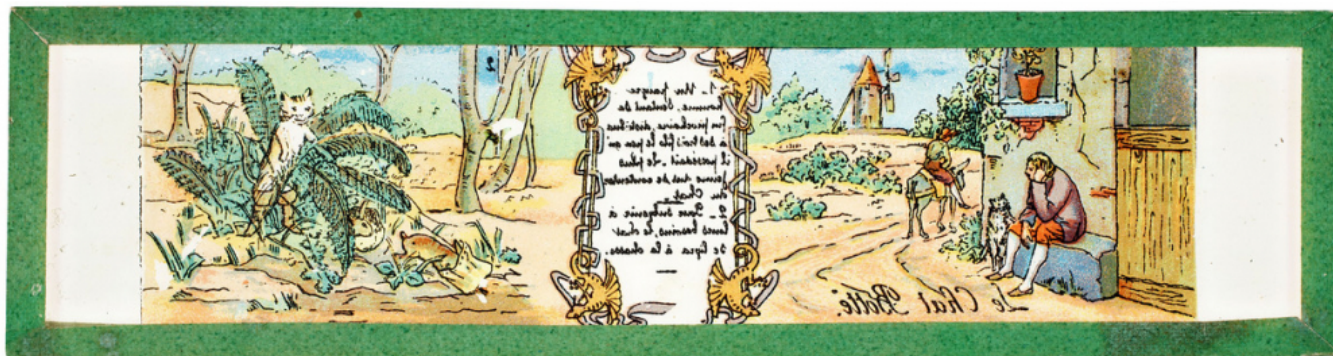 1 - Un pauvre
homme, sentant sa
fin prochaine, distribua
à ses trois fils le peu qu'
il possédait - le plus
jeune dut se contenter
du Chat
2 - Pour subvenir à
leurs besoins, le chat
se livra à la chasse.
Le Chat Botté.
2